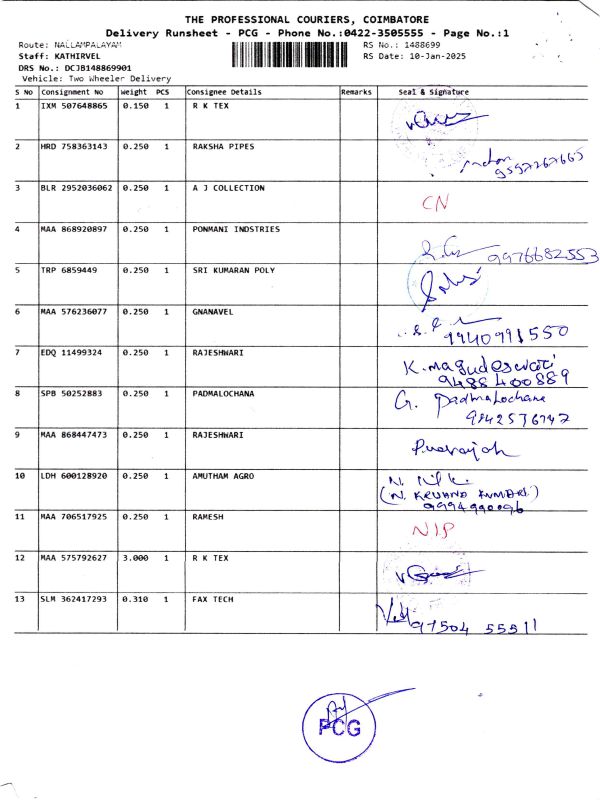 THE PROFESSIONAL COURIERS, COIMBATORE
Delivery Runsheet - PCG - Phone No.:0422-3505555 - Page No.:1
Route: NALLAMPALAYAM RS No.: 1488699
Staff: KATHIRVEL RS Date: 10-Jan-2025
DRS No.: DCJB148869901
Vehicle: Two Wheeler Delivery
S No Consignment No Weight PCS Consignee Details Remarks Seal & Signature
1 IXM 507648865 0.150 1 R K TEX
2 HRD 758363143 0.250 1 RAKSHA PIPES
9597267665
3 BLR 2952036062 0.250 1 A J COLLECTION
CN
4 MAA 868920897 0.250 1 PONMANI INDSTRIES
9976682553
5 TRP 6859449 0.250 1 SRI KUMARAN POLY
6 MAA 576236077 0.250 1 GNANAVEL
9940991550
7 EDQ 11499324 0.250 1 RAJESHWARI
K. magudeswari
9488400889
8 SPB 50252883 0.250 1 PADMALOCHANA
G. Padmalochana
9842576747
9 MAA 868447473 0.250 1 RAJESHWARI
10 LDH 600128920 0.250 1 AMUTHAM AGRO
9994990096
11 MAA 706517925 0.250 1 RAMESH
NIP
12 MAA 575792627 3.000 1 R K TEX
13 SLM 362417293 0.310 1 FAX TECH
97504 55511
PCG